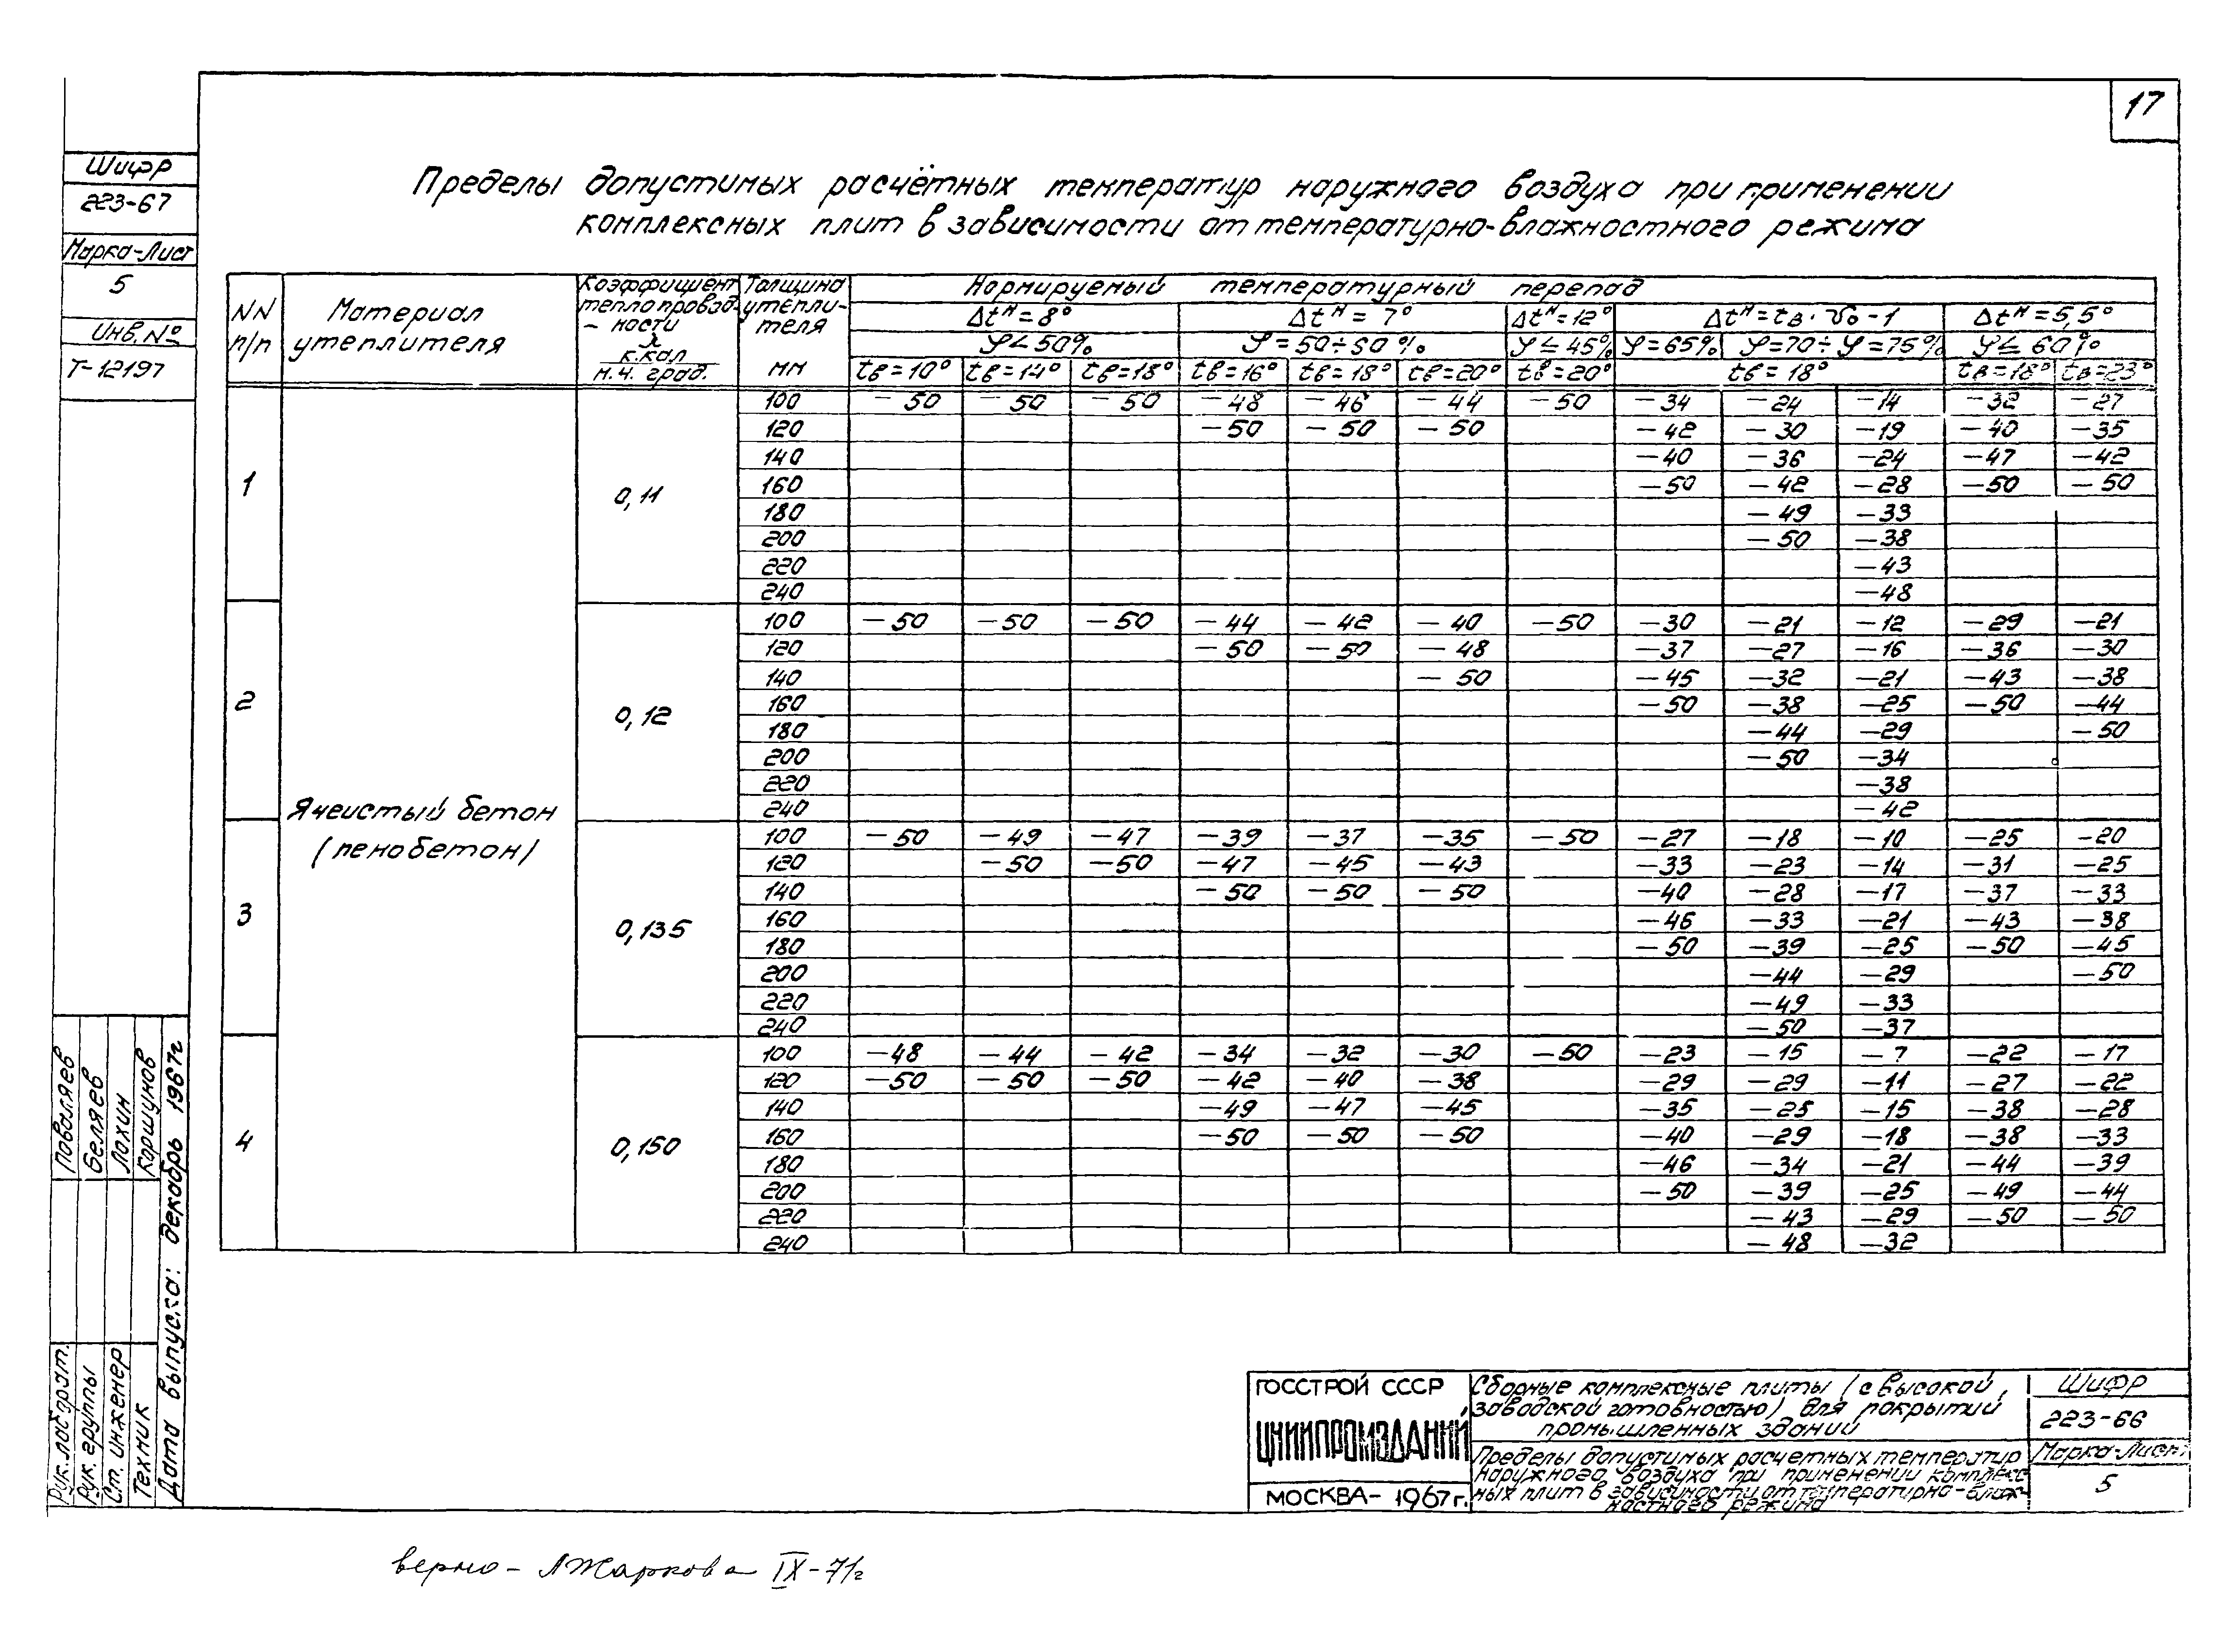 17
Шифр
223-67
Марка-Лист
5
Инв. №
Т-12197
Пределы допустимых расчётных температур наружного воздуха при применении
комплексных плит в зависимости от температурно-влажностного режима
NN п/п
Материал утеплителя
Коэффициент теплопровод- - ности λ к.кал м.ч. град.
Толщина утепли- теля мм
Нормируемый температурный перепад
Δtᴴ = 8° Δtᴴ = 7° Δtᴴ = 12° Δtᴴ = tв · τо - 1 Δtᴴ = 5,5°
φ < 50% φ = 50 ÷ 50 % φ ≤ 45% φ = 65% φ = 70 ÷ φ = 75% φ ≤ 60%
tв = 10° tв = 14° tв = 18° tв = 16° tв = 18° tв = 20° tв = 20° tв = 18° tв = 18° tв = 23°
Ячеистый бетон
(пенобетон)
1 0,11
100 -50 -50 -50 -48 -46 -44 -50 -34 -24 -14 -32 -27
120 -50 -50 -50 -42 -30 -19 -40 -35
140 -40 -36 -24 -47 -42
160 -50 -42 -28 -50 -50
180 -49 -33
200 -50 -38
220 -43
240 -48
2 0,12
100 -50 -50 -50 -44 -42 -40 -50 -30 -21 -12 -29 -21
120 -50 -50 -48 -37 -27 -16 -36 -30
140 -50 -45 -32 -21 -43 -38
160 -50 -38 -25 -50 -44
180 -44 -29 -50
200 -50 -34
220 -38
240 -42
3 0,135
100 -50 -49 -47 -39 -37 -35 -50 -27 -18 -10 -25 -20
120 -50 -50 -47 -45 -43 -33 -23 -14 -31 -25
140 -50 -50 -50 -40 -28 -17 -37 -33
160 -46 -33 -21 -43 -38
180 -50 -39 -25 -50 -45
200 -44 -29 -50
220 -49 -33
240 -50 -37
4 0,150
100 -48 -44 -42 -34 -32 -30 -50 -23 -15 -7 -22 -17
120 -50 -50 -50 -42 -40 -38 -29 -29 -11 -27 -22
140 -49 -47 -45 -35 -25 -15 -38 -28
160 -50 -50 -50 -40 -29 -18 -38 -33
180 -46 -34 -21 -44 -39
200 -50 -39 -25 -49 -44
220 -43 -29 -50 -50
240 -48 -32
Рук. лаборат. Поваляев
Рук. группы Беляев
Ст. инженер Лохин
Техник Коршунов
Дата выпуска: декабрь 1967г
ГОССТРОЙ СССР
ЦНИИПРОМЗДАНИЙ
МОСКВА - 1967г.
Сборные комплексные плиты (с высокой
заводской готовностью) для покрытий
промышленных зданий
Пределы допустимых расчетных температур
наружного воздуха при применении комплекс
ных плит в зависимости от температурно-влаж-
ностного режима
Шифр
223-66
Марка-Лист
5
верно - ЛЖаркова IX-71г